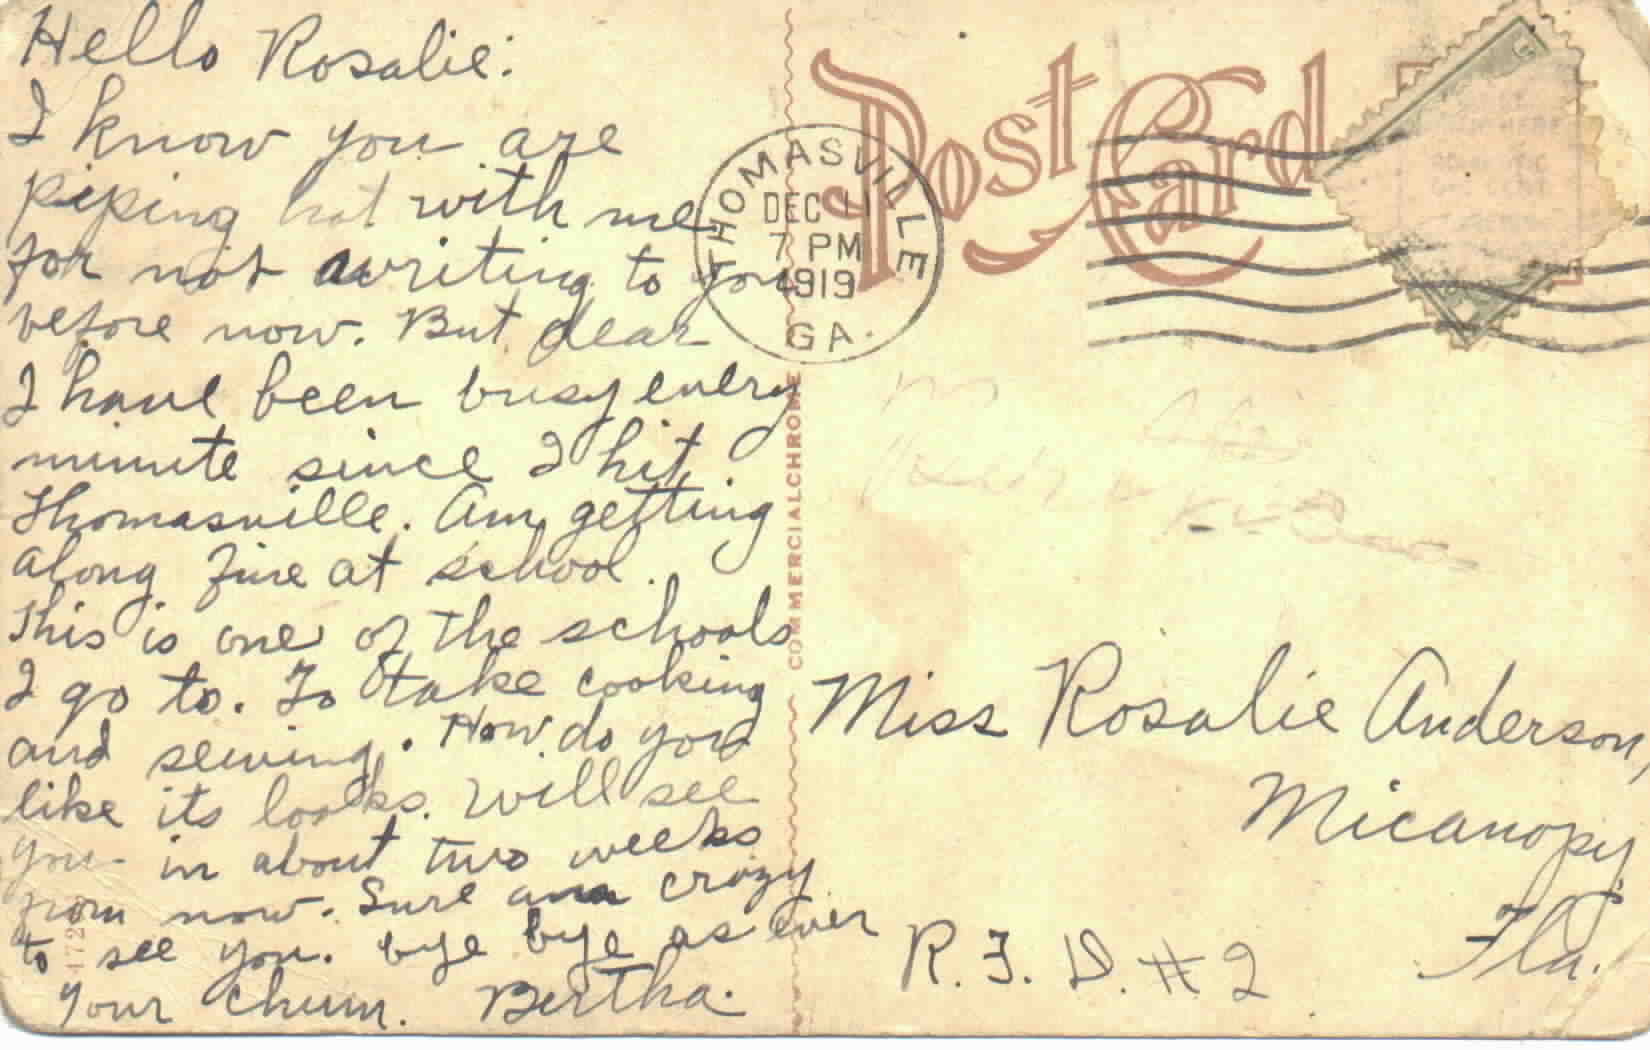 Hello Rosalie:
I know you are
piping hot with me
for not writing to you
before now. But dear
I have been busy every
minute since I hit
Thomasville. Am getting
along fine at school.
This is one of the schools
I go to. To take cooking
and sewing. How do you
like its looks. Will see
you in about two weeks
from now. Sure am crazy
to see you. bye bye as ever
your chum. Bertha.
Post Card
THOMASVILLE
DEC 11
7 PM
1919
GA.
COMMERCIALCHROME
Miss Rosalie Anderson,
Micanopy
Fla.
R.F.D. #2